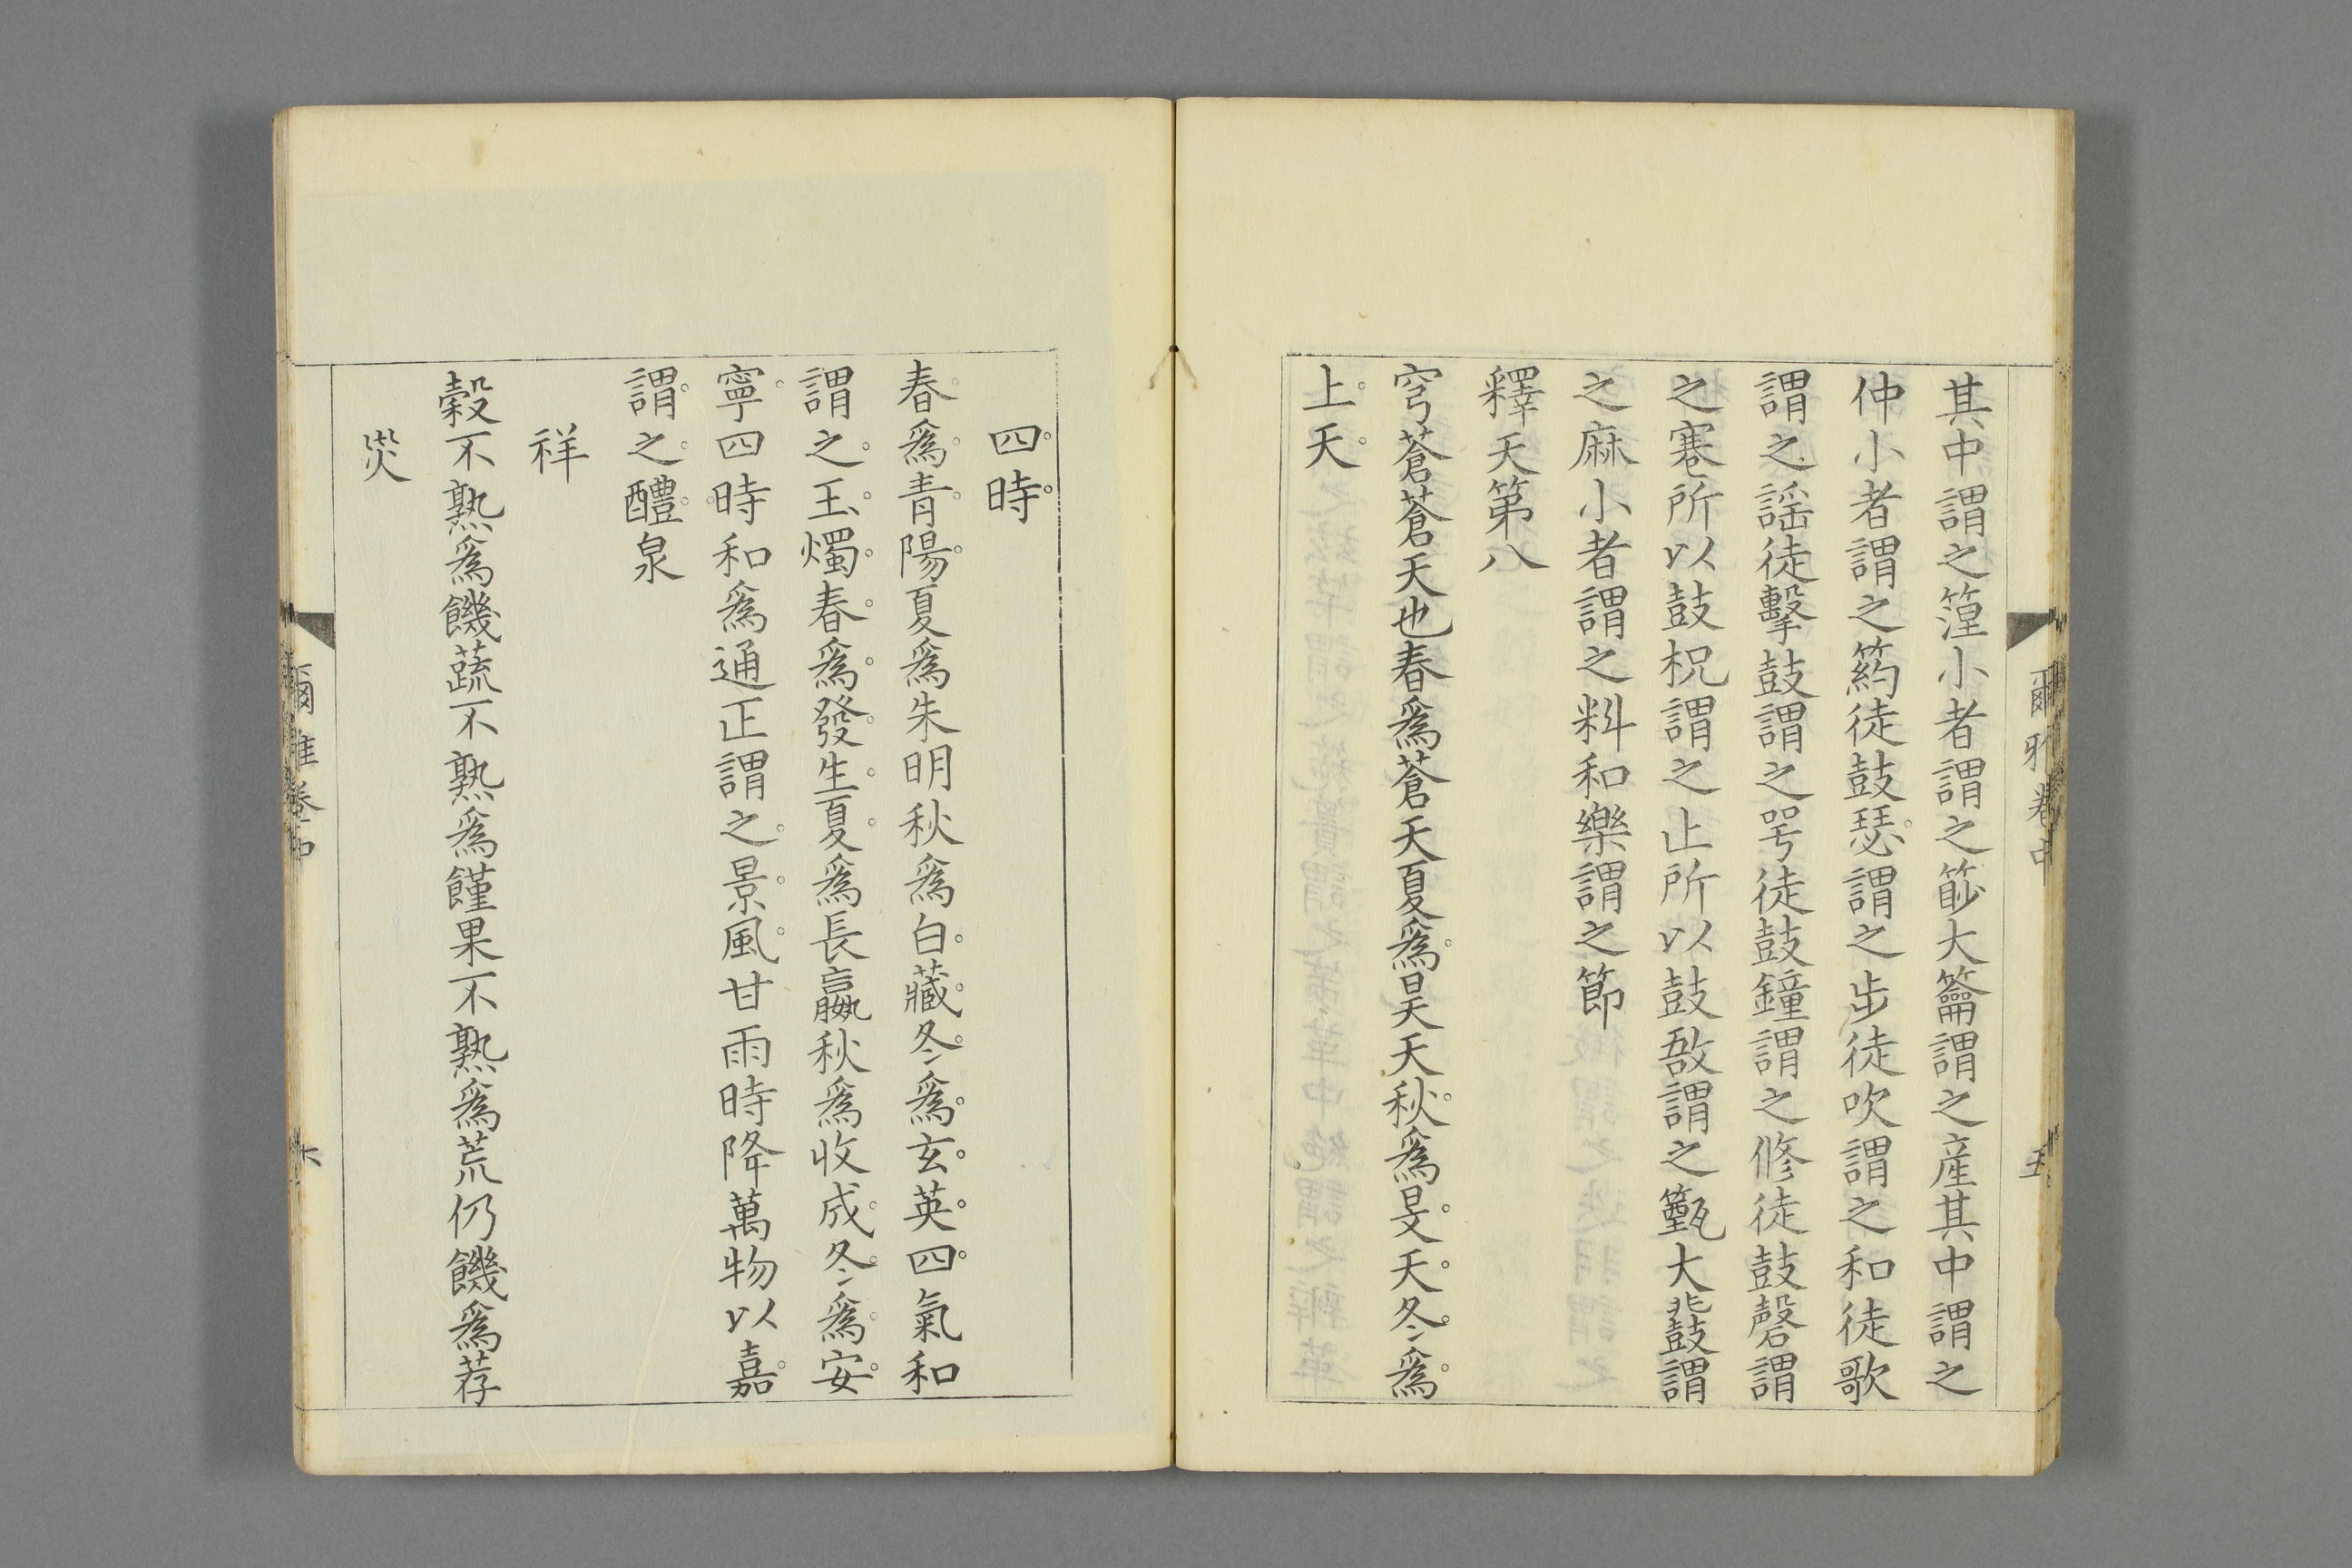 其中謂之篞小者謂之篎大籥謂之產其中謂之
仲小者謂之箹徒鼓瑟謂之步徒吹謂之和徒歌
謂之謠徒擊鼓謂之咢徒鼓鐘謂之修徒鼓磬謂
之寋所以鼓柷謂之止所以鼓敔謂之籈大鼖謂
之麻小者謂之料和樂謂之節
釋天第八
穹蒼蒼天也春爲蒼天夏爲昊天秋爲旻天冬爲
上天
爾雅卷中
五
四時
春爲青陽夏爲朱明秋爲白藏冬爲玄英四氣和
謂之玉燭春爲發生夏爲長嬴秋爲收成冬爲安
寧四時和爲通正謂之景風甘雨時降萬物以嘉
謂之醴泉
祥
穀不熟爲饑蔬不熟爲饉果不熟爲荒仍饑爲荐
災
爾雅卷中
六